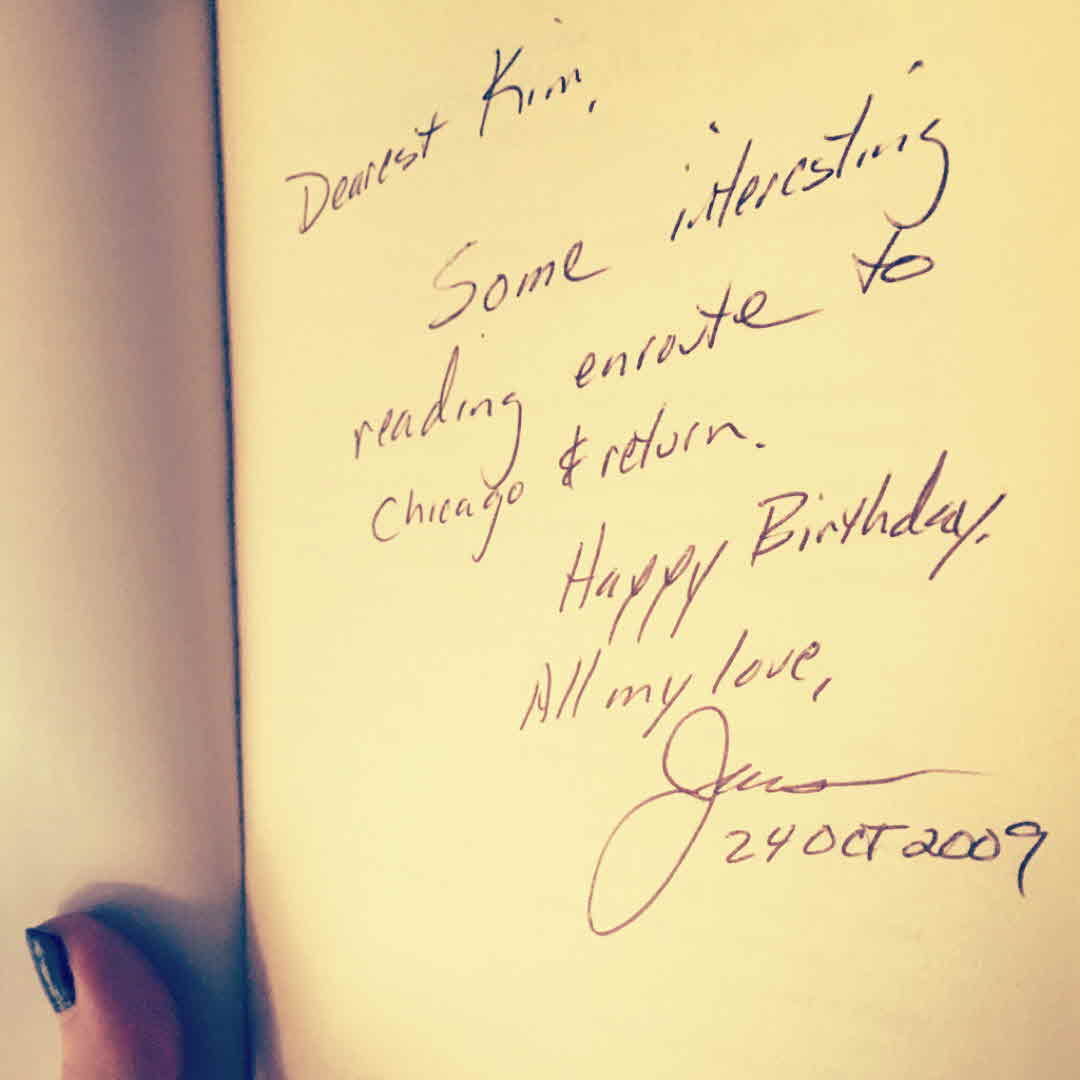 Dearest Kim,
Some interesting
reading enroute to
Chicago & return.
Happy Birthday.
All my love,
24 OCT 2009